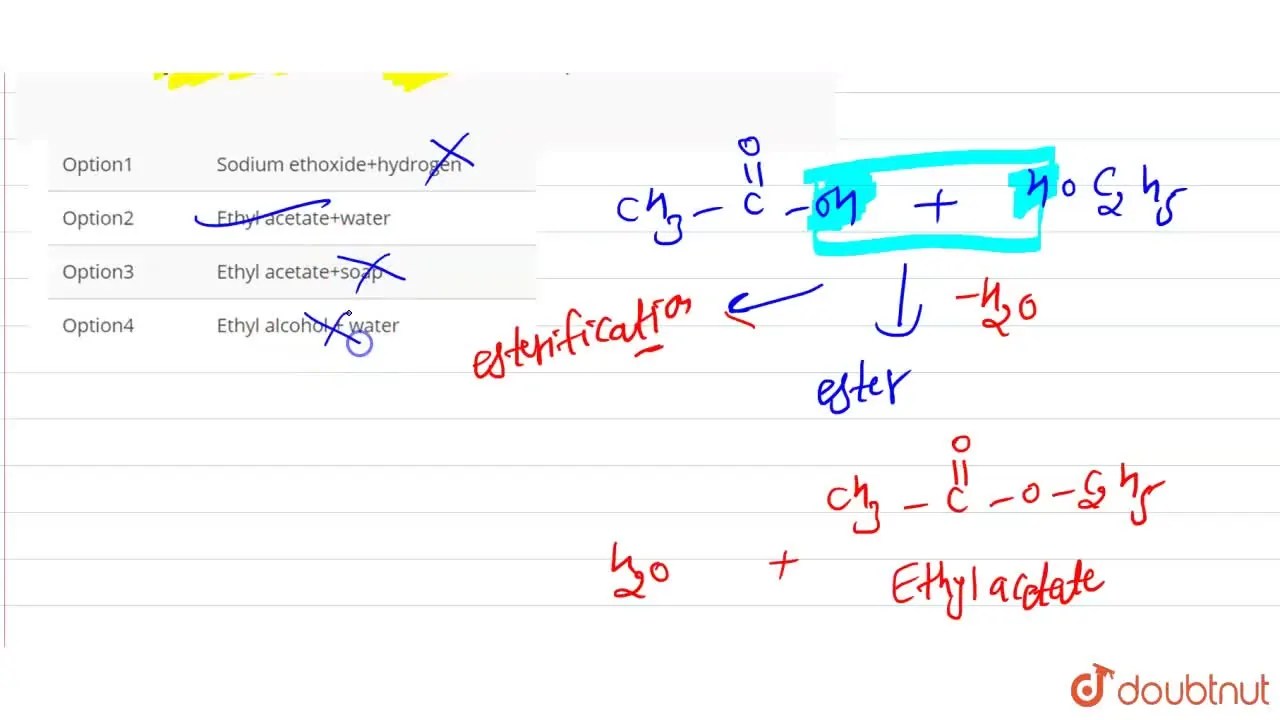 Option1 Sodium ethoxide+hydrogen
Option2 Ethyl acetate+water
Option3 Ethyl acetate+soap
Option4 Ethyl alcohol+ water
O
||
CH3 – C – OH + HO C2H5
–H2O
esterification
ester
O
||
CH3 – C – O – C2H5
H2O +
Ethyl acetate
doubtnut